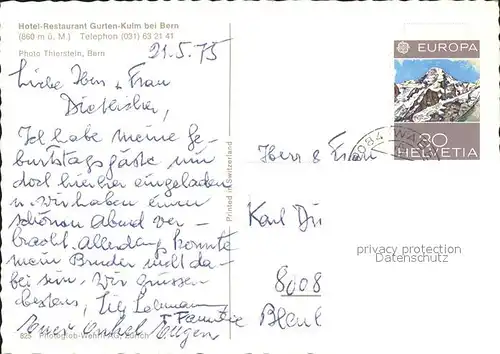 Hotel-Restaurant Gurten-Kulm bei Bern
(860 m ü. M.) Telephon (031) 63 21 41
Photo Thierstein, Bern
21.5.75
Liebe Herr + Frau
Ich habe meine Ge-
burtstagsgäste nun
doch hierher eingeladen
u. wir haben einen
schönen Abend ver-
bracht. Allerdings konnte
mein Bruder nicht da-
bei sein. Wir grüssen
bestens, Lily Lehmann
+ Familie
Euer Onkel Eugen
825 Photoglob-Wehrli AG, Zürich
Printed in Switzerland
EUROPA
80
HELVETIA
3084 WAB
Herr & Frau
Karl Di
8008
privacy protection
Datenschutz